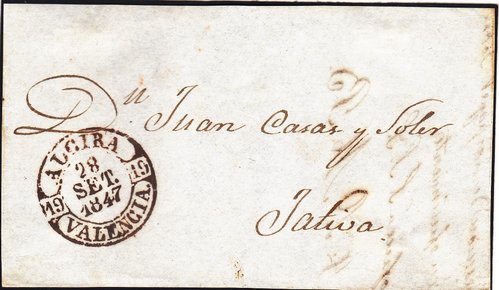 Dn Juan Casas y Soler
Jativa
ALCIRA
28
SET.
1847
19
19
VALENCIA.